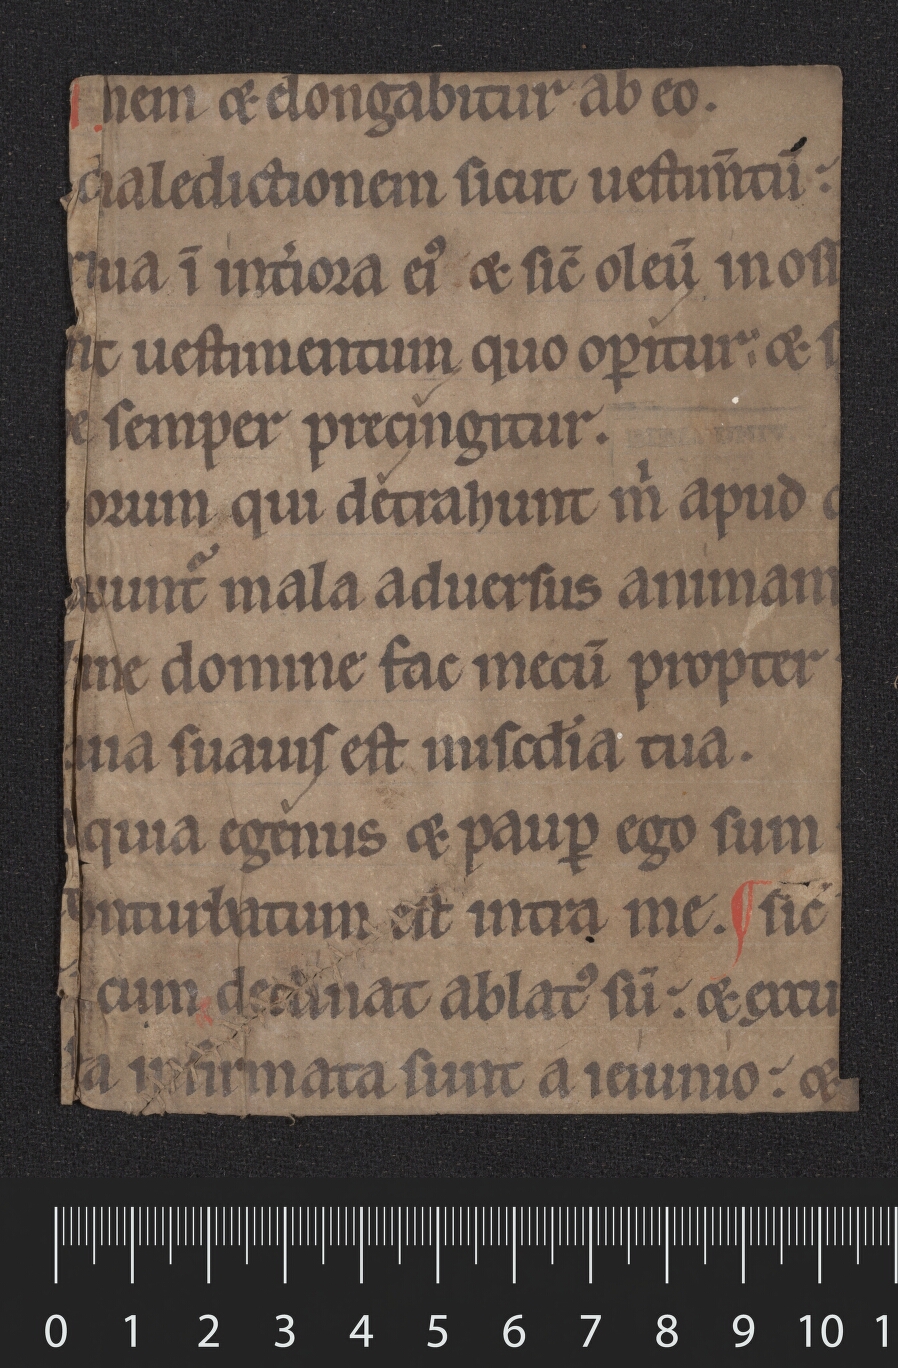 nem & elongabitur ab eo.
maledictionem sicut uestim̄tū :
qua ī int̓iora ei᾿ & sic̄ oleū in ossi
ut uestimentum quo op̲itur : & s
semper precingitur.
orum qui detrahunt m̓ apud d
uunt̃ mala aduersus animam
ne domine fac mecū propter
quia suauis est misc̄dia tua.
quia egenus & paup̲ ego sum
onturbatum est intra me. ¶ sic̄
cum declinat ablat᾿ sū : & excu
ta infirmata sunt a ieiunio : &
0 1 2 3 4 5 6 7 8 9 10 1